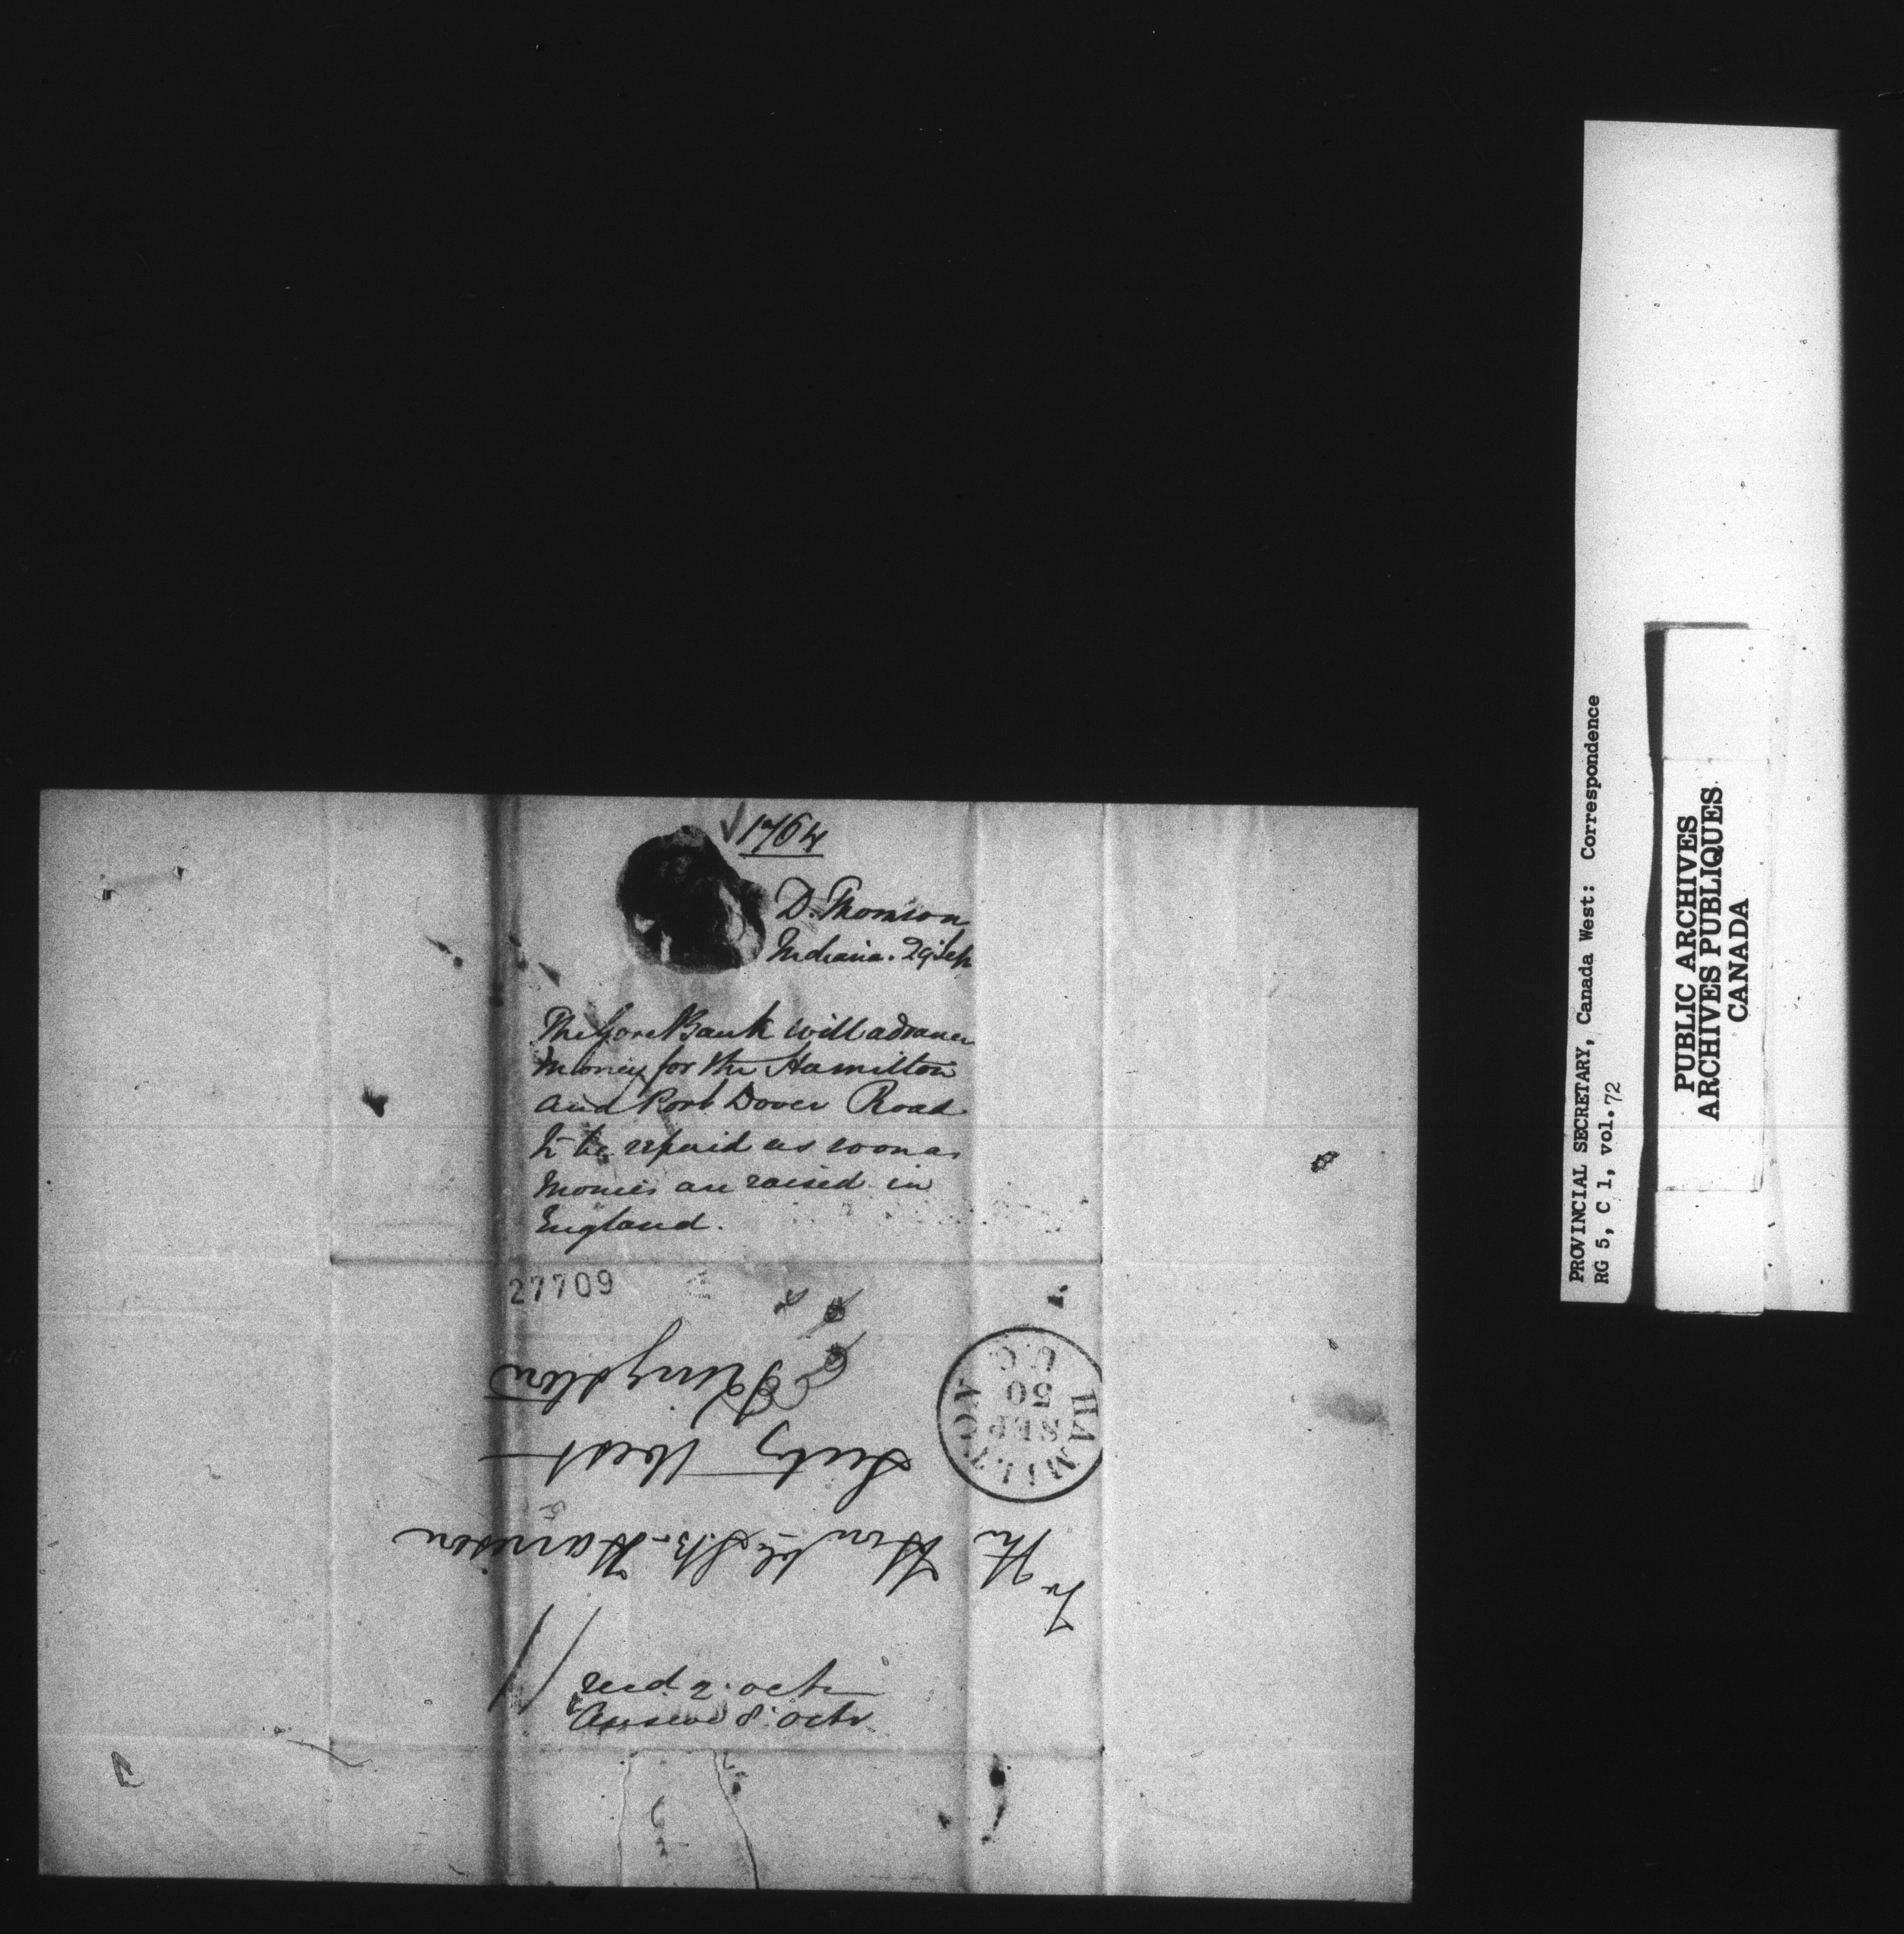 1764
D. Thomson
Indiana. 29 Sep
The Gore Bank will advance
money for the Hamilton
and Port Dover Road
to be repaid as soon as
monies are raised in
England.
27709
To The Honble S. B. Harrison
Secty West
Kingston
HAMILTON
SEP
30
U.C.
recd 2. octr
Answd 8. octr
PROVINCIAL SECRETARY, Canada West: Correspondence
RG 5, C 1, vol. 72
PUBLIC ARCHIVES
ARCHIVES PUBLIQUES
CANADA